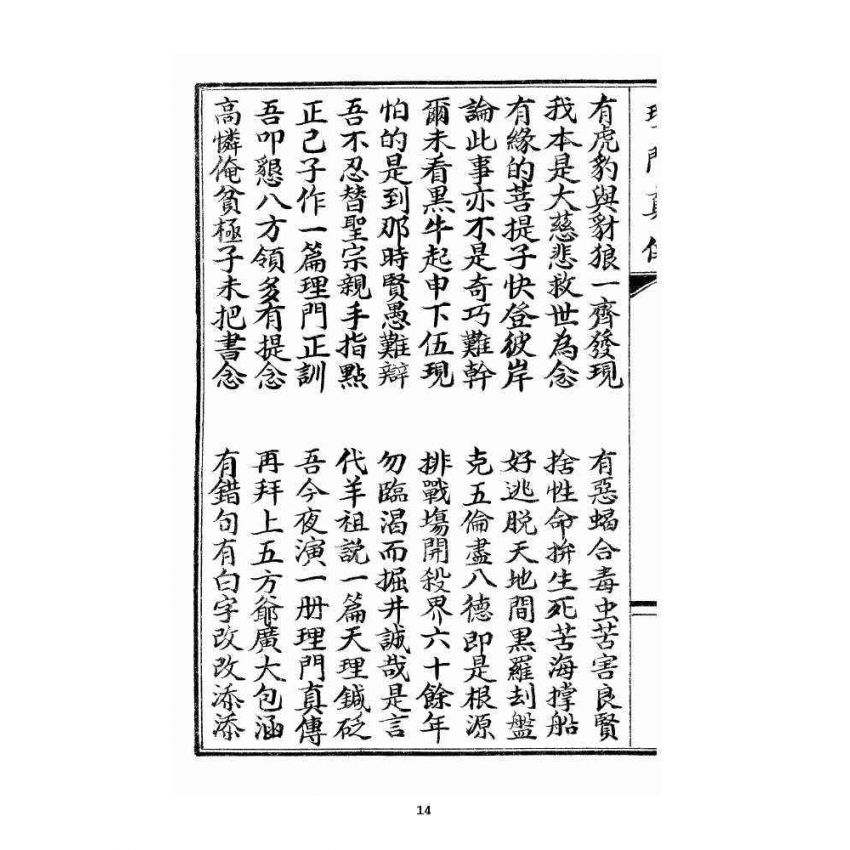 理門真傳
有虎豹與豺狼一齊發現 有惡蝎合毒虫苦害良賢
我本是大慈悲救世為念 捨性命拚生死苦海撑船
有緣的菩提子快登彼岸 好逃脫天地間黑羅刦盤
論此事亦不是奇巧難幹 克五倫盡八德即是根源
爾未看黑牛起申下伍現 排戰塲開殺界六十餘年
怕的是到那時賢愚難辯 勿臨渴而掘井誠哉是言
吾不忍替聖宗親手指點 代羊祖説一篇天理鍼砭
正己子作一篇理門正訓 吾今夜演一册理門真傳
吾叩懇八方領多有提念 再拜上五方爺廣大包涵
高憐俺貧極子未把書念 有錯句有白字改改添添
14